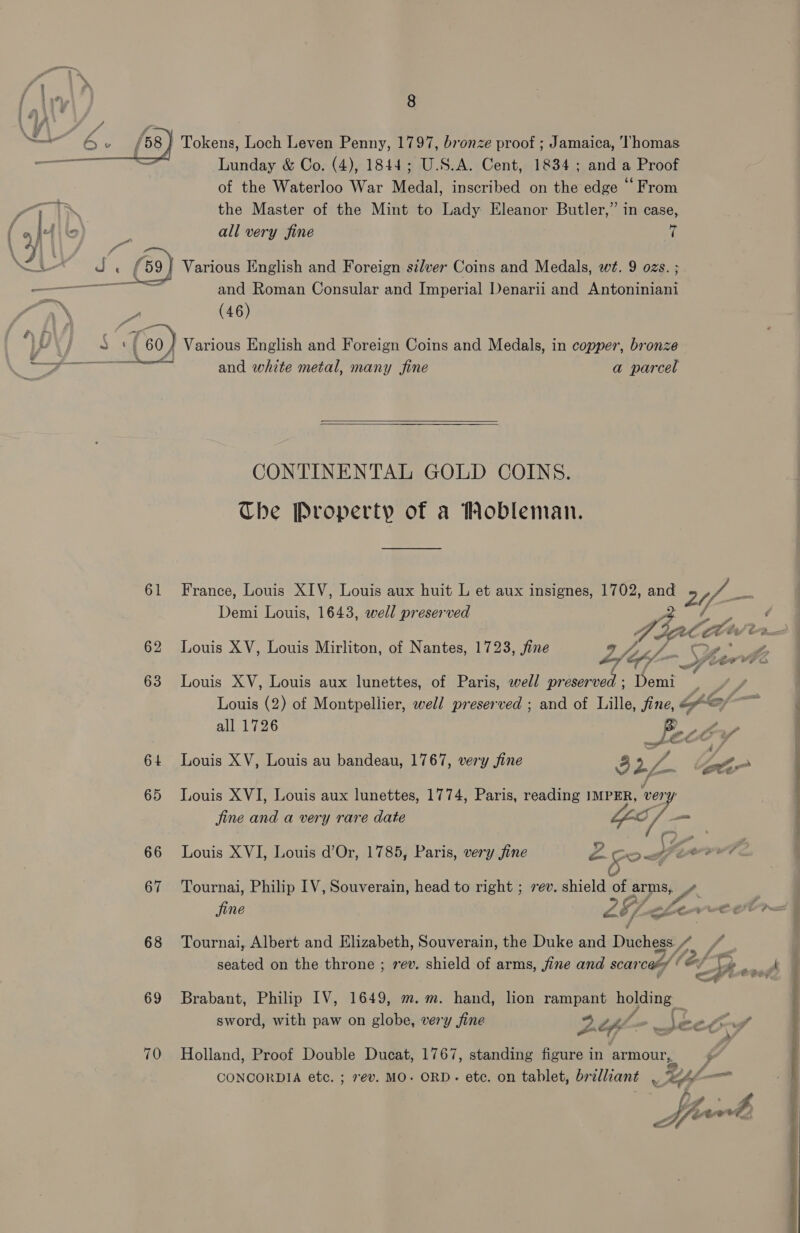 8
58 Tokens, Loch Leven Penny, 1797, bronze proof ; Jamaica, Thomas
Lunday & Co. (4), 1844 ; U.S.A. Cent, 1834 ; and a Proof
of the Waterloo War Medal, inscribed on the edge “From
the Master of the Mint to Lady Eleanor Butler,” in case,
all very fine 7
59 Various English and Foreign silver Coins and Medals, wt. 9 ozs. ;
and Roman Consular and Imperial Denarii and Antoniniani
(46)
60 Various English and Foreign Coins and Medals, in copper, bronze
and white metal, many fine a parcel
CONTINENTAL GOLD COINS.
The Property of a Nobleman.
61 France, Louis XIV, Louis aux huit L et aux insignes, 1702, and
Demi Louis, 1643, well preserved 2
62 Louis XV, Louis Mirliton, of Nantes, 1723, fine
63 Louis XV, Louis aux lunettes, of Paris, well preserved ; Demi
Louis (2) of Montpellier, well preserved ; and of Lille, fine,
all 1726
64 Louis XV, Louis au bandeau, 1767, very fine
65 Louis XVI, Louis aux lunettes, 1774, Paris, reading IMPER, very
fine and a very rare date
66 Louis XVI, Louis d’Or, 1785, Paris, very fine
67 Tournai, Philip IV, Souverain, head to right ; rev. shield of arms,
fine
68 Tournai, Albert and Elizabeth, Souverain, the Duke and Duchess
seated on the throne ; rev. shield of arms, fine and scarce
69 Brabant, Philip IV, 1649, m. m. hand, lion rampant holding
sword, with paw on globe, very fine
70 Holland, Proof Double Ducat, 1767, standing figure in armour,
CONCORDIA etc. ; rev. MO · ORD · etc. on tablet, brilliant